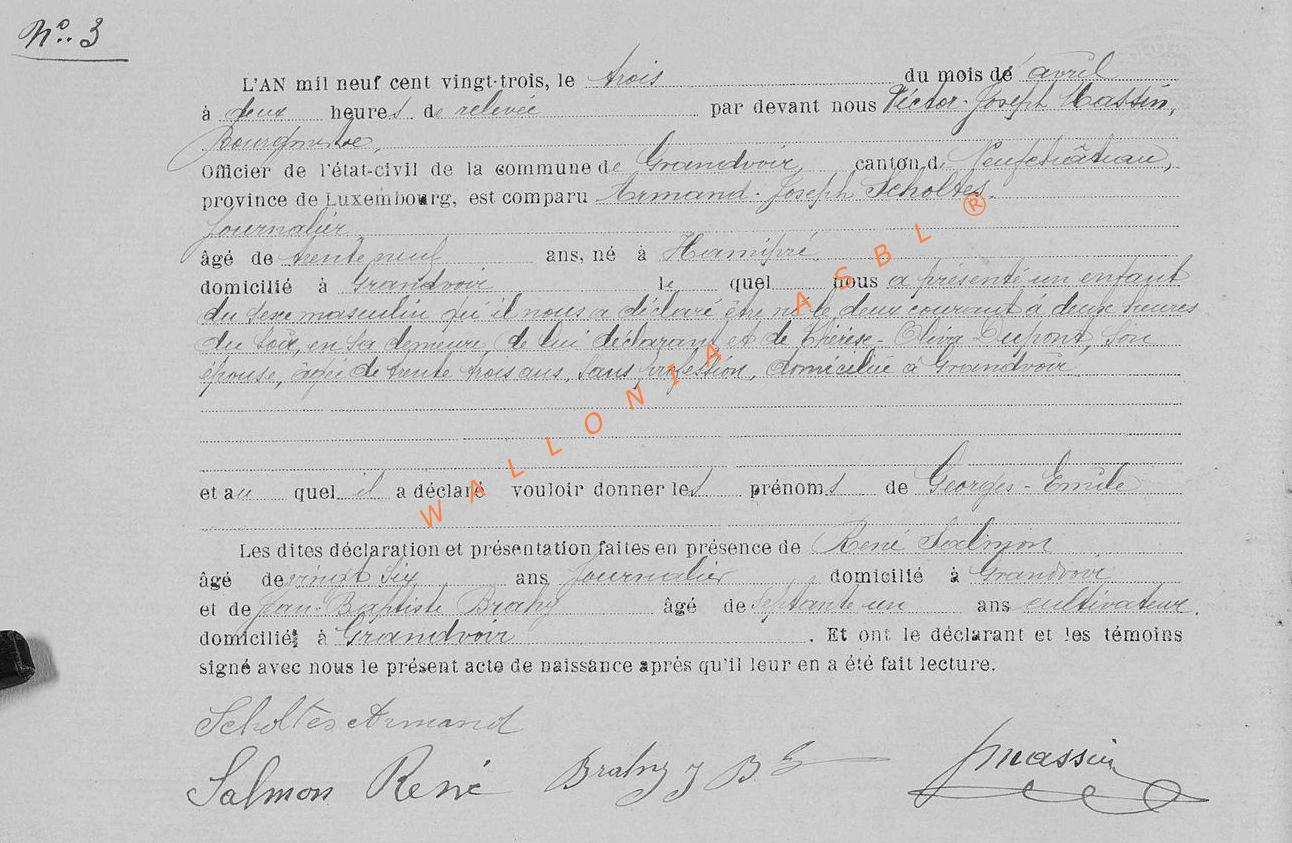 No.. 3
L'AN mil neuf cent vingt-trois, le trois du mois de avril
à deux heures de relevée par devant nous Victor-Joseph Massin,
Bourgmestre,
Officier de l'état-civil de la commune de Grandvoir, canton de Neufchâteau,
province de Luxembourg, est comparu Armand-Joseph Scholtès,
Journalier
âgé de trente neuf ans, né à Hamipré,
domicilié à Grandvoir lequel nous a présenté un enfant
du sexe masculin qu'il nous a déclaré être né le deux courant à deux heures
du soir, en sa demeure, de lui déclarant et de Thérèse-Oliva Dupont, son
épouse, âgée de trente trois ans, sans profession, domiciliée à Grandvoir
et au quel il a déclaré vouloir donner les prénoms de Georges-Emile
Les dites déclaration et présentation faites en présence de René Salmon
âgé de vingt six ans Journalier, domicilié à Grandvoir
et de Jean-Baptiste Brahy âgé de septante un ans cultivateur,
domiciliés à Grandvoir. Et ont le déclarant et les témoins
signé avec nous le présent acte de naissance après qu'il leur en a été fait lecture.
Scholtès Armand
Salmon René Brahy J B Jmassin
WALLONIA ASBL ®